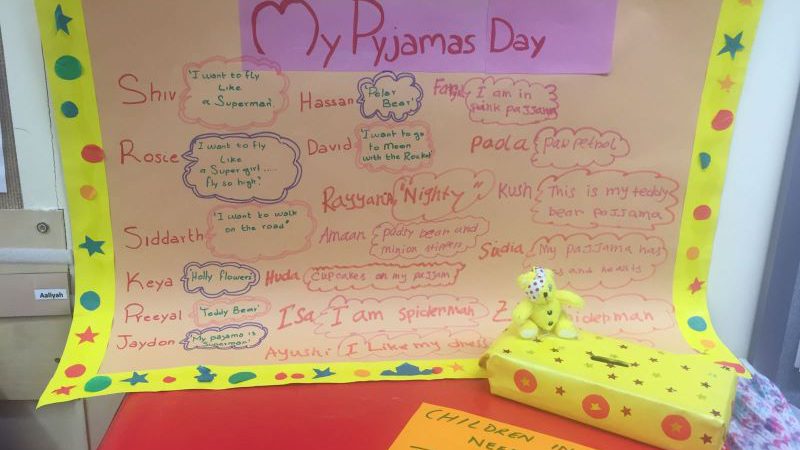 My Pyjamas Day
Shiv
'I want to fly
Like
a Superman'
Hassan
'Polar
Bear'
I am in
pajjama
Roscie
I want to fly
Like
a Supergirl....
fly so high."
David
'I want to go
to Moon
with the Rocket'
Paola
paw petrol
Rayyan
"Nighty"
Kush
This is my teddy
bear pajjama
Siddarth
'I want to walk
on the road"
Amaan
padsy bean and
minion
Sadia
My pajjama has
and hearts
Keya
'Holly flowers'
Huda
cupcakes on my pajjam
Aaliyah
Preeyal
'Teddy Bear'
Isa
I am spiderman
Z
Jaydon
'My pajama is
Superman'
Ayushi
I Like my dress
CHILDREN IN
NEE